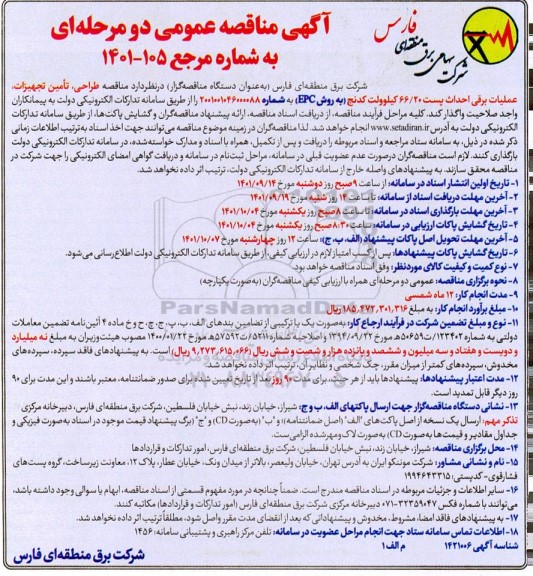 آگهی مناقصه عمومی دو مرحله‌ای
به شماره مرجع ۱۰۵-۱۴۰۱
شرکت سهامی برق منطقه‌ای فارس
شرکت برق منطقه‌ای فارس (به‌عنوان دستگاه مناقصه‌گزار) درنظردارد مناقصه طراحی، تأمین تجهیزات،
عملیات برقی احداث پست ۶۶/۲۰ کیلوولت کدنج (به روش EPC) به شماره ۲۰۰۱۰۰۱۰۴۶۰۰۰۰۸۸ را از طریق سامانه تدارکات الکترونیکی دولت به پیمانکاران
واجد صلاحیت واگذار کند. کلیه مراحل فرآیند مناقصه، از دریافت اسناد مناقصه، ارائه پیشنهاد مناقصه‌گران و گشایش پاکت‌ها، از طریق سامانه تدارکات
الکترونیکی دولت به آدرس www.setadiran.ir انجام خواهد شد. لذا مناقصه‌گران در زمینه موضوع مناقصه می‌توانند جهت اخذ اسناد به‌ترتیب اطلاعات زمانی
ذکر شده در ذیل، به سامانه ستاد مراجعه و اسناد مربوطه را دریافت و پس از تکمیل، همراه با اسناد و مدارک خواسته‌شده، در سامانه تدارکات الکترونیکی دولت
بارگذاری کنند. لازم است مناقصه‌گران درصورت عدم عضویت قبلی در سامانه، مراحل ثبت‌نام در سامانه و دریافت گواهی امضای الکترونیکی را جهت شرکت در
مناقصه انجام دهند. به پیشنهادهای واصله خارج از سامانه تدارکات الکترونیکی دولت، ترتیب اثر داده نخواهد شد.
۱- تاریخ اولین انتشار اسناد در سامانه: از ساعت ۹ صبح روز دوشنبه مورخ ۱۴۰۱/۰۹/۱۴
۲- آخرین مهلت دریافت اسناد از سامانه: تا ساعت ۱۲ روز شنبه مورخ ۱۴۰۱/۰۹/۱۹
۳- آخرین مهلت بارگذاری اسناد در سامانه: ساعت ۸ صبح روز یکشنبه مورخ ۱۴۰۱/۱۰/۰۴
۴- تاریخ گشایش پاکات ارزیابی در سامانه: ساعت ۸:۳۰ صبح روز یکشنبه مورخ ۱۴۰۱/۱۰/۰۴
۵- آخرین مهلت تحویل اصل پاکات پیشنهاد (الف، ب، ج): ساعت ۱۲ روز چهارشنبه مورخ ۱۴۰۱/۱۰/۰۷
۶- تاریخ گشایش پاکات پیشنهادها: پس از کسب امتیاز لازم در ارزیابی کیفی، از طریق سامانه تدارکات الکترونیکی دولت اطلاع‌رسانی می‌شود.
۷- نوع کمیت و کیفیت کالای موردنظر: وفق اسناد مناقصه خواهد بود.
۸- نحوه برگزاری مناقصه: عمومی دو مرحله‌ای همراه با ارزیابی کیفی مناقصه‌گران (به‌صورت یکپارچه)
۹- مدت انجام کار: ۱۲ ماه شمسی
۱۰- مبلغ برآورد انجام کار: به مبلغ ۱۸۵,۴۷۲,۳۰۱,۳۱۶ ریال
۱۱- نوع و مبلغ تضمین شرکت در فرآیند ارجاع کار: به‌صورت یک یا ترکیبی از تضامین بندهای الف، ب، پ، ج، چ، ح و خ ماده ۴ آئین‌نامه تضمین معاملات
دولتی به شماره ۱۲۳۴۰۲/ت۵۰۶۵۹هـ مورخ ۱۳۹۴/۰۹/۲۲ و اصلاحیه شماره ۵۲۱۱/ت۵۷۵۹۲هـ مورخ ۱۴۰۰/۰۱/۲۲ مصوب هیئت‌وزیران به مبلغ نه میلیارد
و دویست و هفتاد و سه میلیون و ششصد و پانزده هزار و شصت و شش ریال (۹,۲۷۳,۶۱۵,۰۶۶ ریال) است. به پیشنهادهای فاقد سپرده، سپرده‌های
مخدوش، سپرده‌های کمتر از میزان مقرر، چک شخصی و نظایر آن، ترتیب اثر داده نخواهد شد.
۱۲- مدت اعتبار پیشنهادها: پیشنهادها باید از هر حیث، برای مدت ۹۰ روز بعد از تاریخ تعیین شده برای صدور ضمانتنامه، معتبر باشند و این مدت برای ۹۰
روز دیگر قابل تمدید است.
۱۳- نشانی دستگاه مناقصه‌گزار جهت ارسال پاکتهای الف، ب و ج: شیراز، خیابان زند، نبش خیابان فلسطین، شرکت برق منطقه‌ای فارس، دبیرخانه مرکزی
تذکر مهم: ارسال یک نسخه از اصل پاکت‌های "الف" (اصل ضمانتنامه) و "ب" (به‌صورت CD) و "ج" (برگ پیشنهاد قیمت موجود در اسناد به‌صورت فیزیکی و
جداول مقادیر و قیمت‌ها به‌صورت CD) به‌صورت لاک‌ومهر شده الزامی‌ست.
۱۴- محل برگزاری مناقصه: شیراز، خیابان زند، نبش خیابان فلسطین، شرکت برق منطقه‌ای فارس، امور تدارکات و قراردادها
۱۵- نام و نشانی مشاور: شرکت موننکو ایران به آدرس تهران، خیابان ولیعصر، بالاتر از میدان ونک، خیابان عطار، پلاک ۱۲، معاونت زیرساخت، گروه پست‌های
فشارقوی- کدپستی: ۱۹۹۴۶۴۳۳۱۵
۱۶- سایر اطلاعات و جزئیات مربوطه در اسناد مناقصه مندرج است. ضمناً چنانچه در مورد مفهوم قسمتی از اسناد مناقصه، ابهام یا سوالی وجود داشته باشد،
می‌توانند با شماره فکس ۳۲۳۵۹۰۴۷-۰۷۱ دبیرخانه مرکزی شرکت برق منطقه‌ای فارس (امور تدارکات و قراردادها) مکاتبه کنند.
۱۷- به پیشنهادهای فاقد امضا، مشروط، مخدوش و پیشنهاداتی که بعد از انقضای مدت مقرر واصل شود، مطلقاً ترتیب اثر داده نخواهد شد.
۱۸- اطلاعات تماس سامانه ستاد جهت انجام مراحل عضویت در سامانه: تلفن مرکز راهبری و پشتیبانی سامانه: ۱۴۵۶
شناسه آگهی ۱۴۲۱۰۰۶ م الف ۱
شرکت برق منطقه‌ای فارس
ParsNamadData